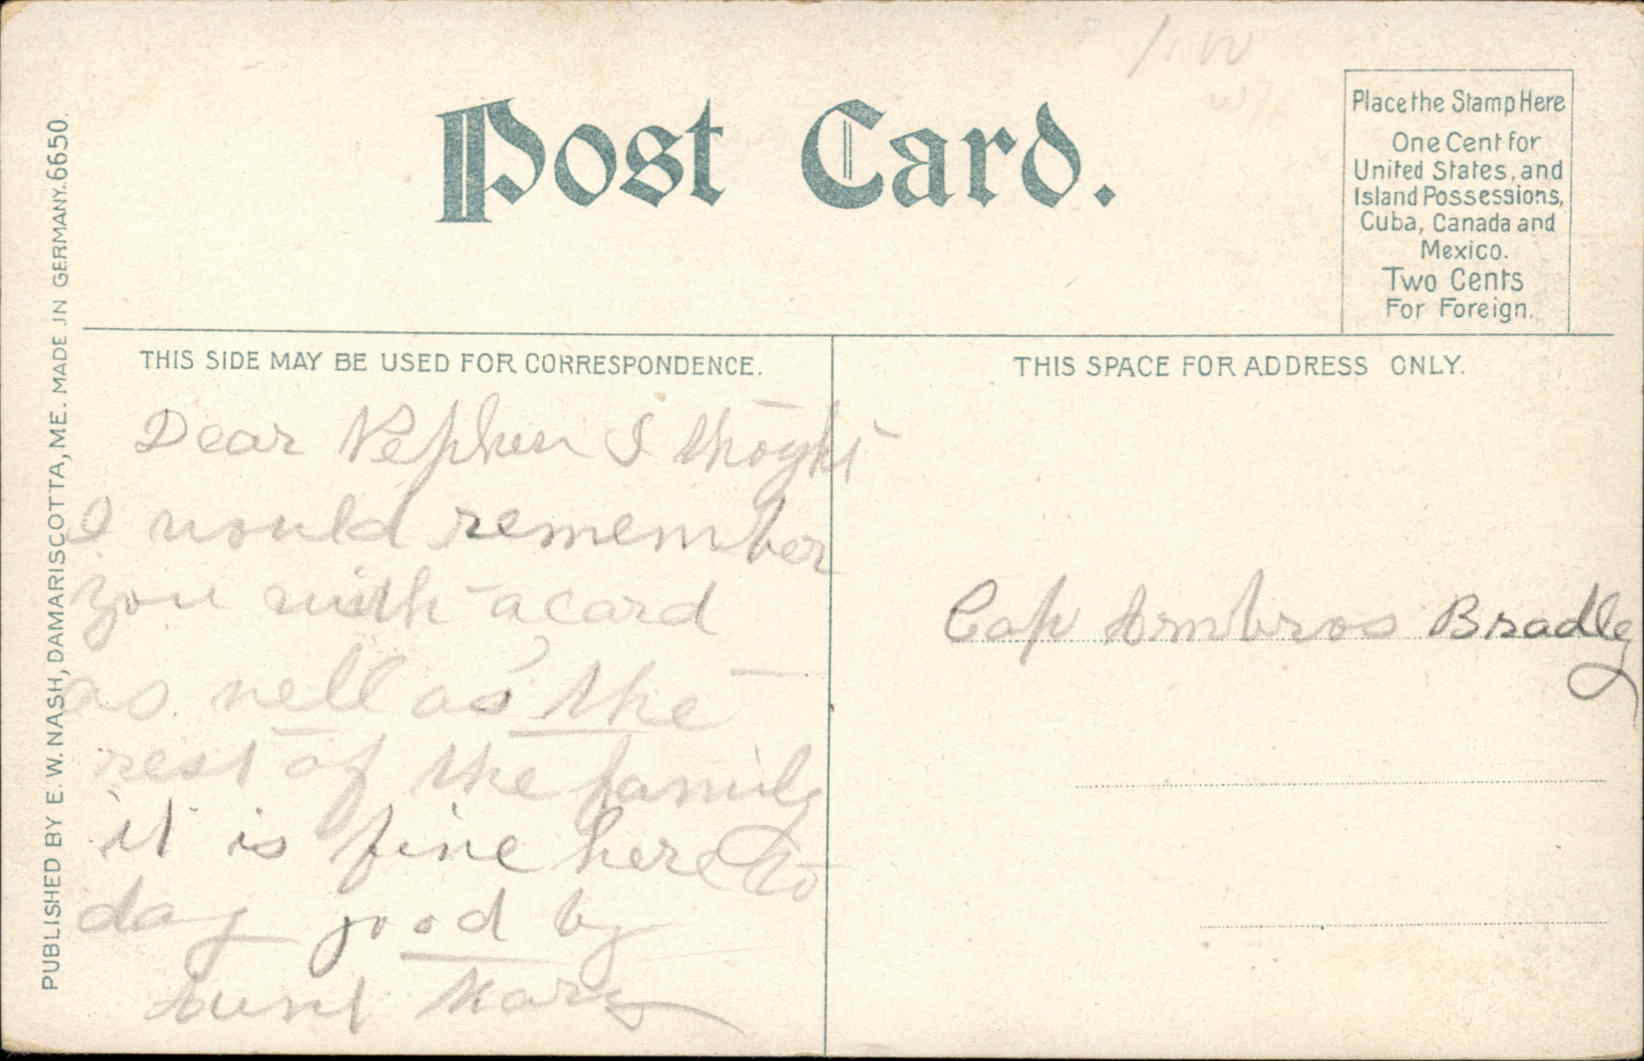 Post Card.
Place the Stamp Here
One Cent for
United States, and
Island Possessions,
Cuba, Canada and
Mexico.
Two Cents
For Foreign.
PUBLISHED BY E. W. NASH, DAMARISCOTTA, ME. MADE IN GERMANY. 6650.
THIS SIDE MAY BE USED FOR CORRESPONDENCE.
Dear Nephew I
I would remember
you with a card
as well as the
rest of the family
it is fine here to
day good by
Aunt Mary
THIS SPACE FOR ADDRESS ONLY.
Cap Ambros Bradley